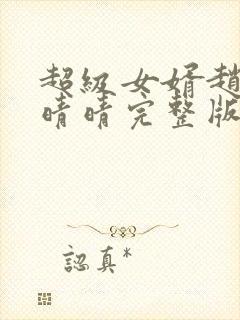 超級女婿趙
晴晴完整版
認真*